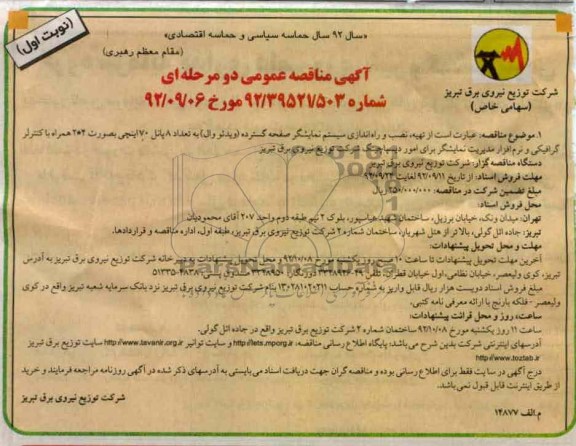 (نوبت اول)
«سال ۹۲ سال حماسه سیاسی و حماسه اقتصادی»
(مقام معظم رهبری)
آگهی مناقصه عمومی دو مرحله ای
شماره ۹۲/۳۹۵۲۷/۵۰۳ مورخ ۹۲/۰۹/۰۶
شرکت توزیع نیروی برق تبریز
(سهامی خاص)
۱. موضوع مناقصه: عبارت است از تهیه، نصب و راه اندازی سیستم نمایشگر صفحه گسترده (ویدئو وال) به تعداد ۸ پانل ۷۰ اینچی بصورت ۲*۴ همراه با کنترلر
گرافیکی و نرم افزار مدیریت نمایشگر برای امور دیسپاچینگ شرکت توزیع نیروی برق تبریز
دستگاه مناقصه گزار: شرکت توزیع نیروی برق تبریز
مهلت فروش اسناد: از تاریخ ۹۲/۰۹/۱۱ لغایت ۹۲/۰۹/۲۴
مبلغ تضمین شرکت در مناقصه: ۲۵۰/۰۰۰/۰۰۰ ریال
محل فروش اسناد:
تهران: میدان ونک، خیابان برزیل، ساختمان شهید عباسپور، بلوک ۲ نیم طبقه دوم واحد ۲۰۷ آقای محمودیان
تبریز: جاده ائل گولی، بالاتر از هتل شهریار، ساختمان شماره ۲ شرکت توزیع نیروی برق تبریز، طبقه اول، اداره مناقصه و قراردادها.
مهلت و محل تحویل پیشنهادات:
آخرین مهلت تحویل پیشنهادات تا ساعت ۱۰ صبح روز یکشنبه مورخ ۹۲/۱۰/۰۸ و محل تحویل پیشنهادات دبیرخانه شرکت توزیع نیروی برق تبریز به آدرس
تبریز، کوی ولیعصر، خیابان نظامی، اول خیابان قطران، تلفن دورنگار ۵۱۳۳۵-۴۸۳۸
مبلغ فروش اسناد دویست هزار ریال قابل واریز به شماره حساب ۱۳۰۲۸۱۰۲۰۲۱۱ بنام شرکت توزیع نیروی برق تبریز نزد بانک سرمایه شعبه تبریز واقع در کوی
ولیعصر - فلکه بارنج با ارائه معرفی نامه کتبی.
ساعت، روز و محل قرائت پیشنهادات:
ساعت ۱۱ روز یکشنبه مورخ ۹۲/۱۰/۰۸ ساختمان شماره ۲ شرکت توزیع برق تبریز واقع در جاده ائل گولی.
آدرسهای اینترنتی شرکت بدین شرح می باشد: پایگاه اطلاع رسانی مناقصه، http://iets.mporg.ir و سایت توانیر http://www.tavanir.org.ir سایت توزیع برق تبریز
http://www.toztab.ir
درج آگهی در سایت فقط برای اطلاع رسانی بوده و مناقصه گران جهت دریافت اسناد می بایستی به آدرسهای ذکر شده در آگهی روزنامه مراجعه فرمایند و خرید
از طریق اینترنت قابل قبول نمی باشد.
شرکت توزیع نیروی برق تبریز
م.الف ۱۴۸۷۷